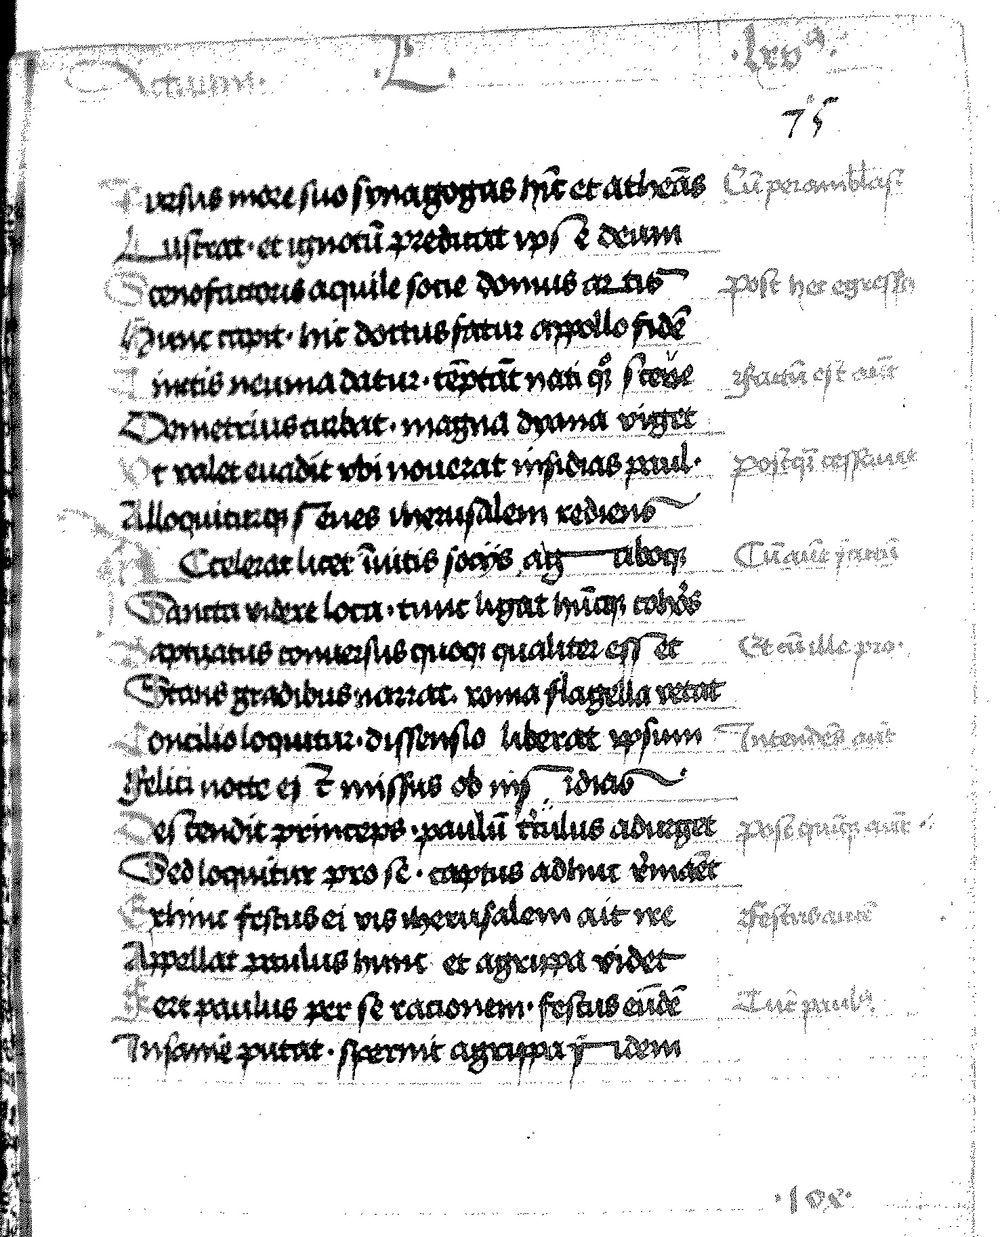 Actuum · L · lxvꝰ
75
Tursus more suo synagogas hic̄ et athenas Cū perambl̄as
Lustrat · et ignotū predicat ipse deum
Scenofactoris aquile socie domus artis Post hec egressꝰ
Hunc capit · hic doctus fatur appollo fidē
neuma datur · tēptāt nati sceue Factū est aūt
Demetrius turbat · magna dyana viget
Vt valet euadit vbi nouerat insidias paul· Postqꝫ cessauit
Alloquiturqꝫ senes iherusalem rediens
Ccelerat licet īuitis socijs Cū autē
Sancta videre loca · tunc ligat cohors
Captiuatus conuersus quoqꝫ qualiter esset Et cū ille pro·
Stans gradibus narrat · roma flagella vetat
Concilio loquitur · dissensio liberat ipsum Intendēs aūt
Felici nocte missus ob insidias
Descendit princeps · paulū adurget Post quinqꝫ aūt
Sed loquitur pro se · captus adhuc
Exhinc festus ei vis iherusalem ait ire Festus autē
Appellat paulus hunc et agrippa videt
Fert paulus per se racionem · festus eūdē Tūc paulꝰ
Insanire putat · spernit agrippa idem